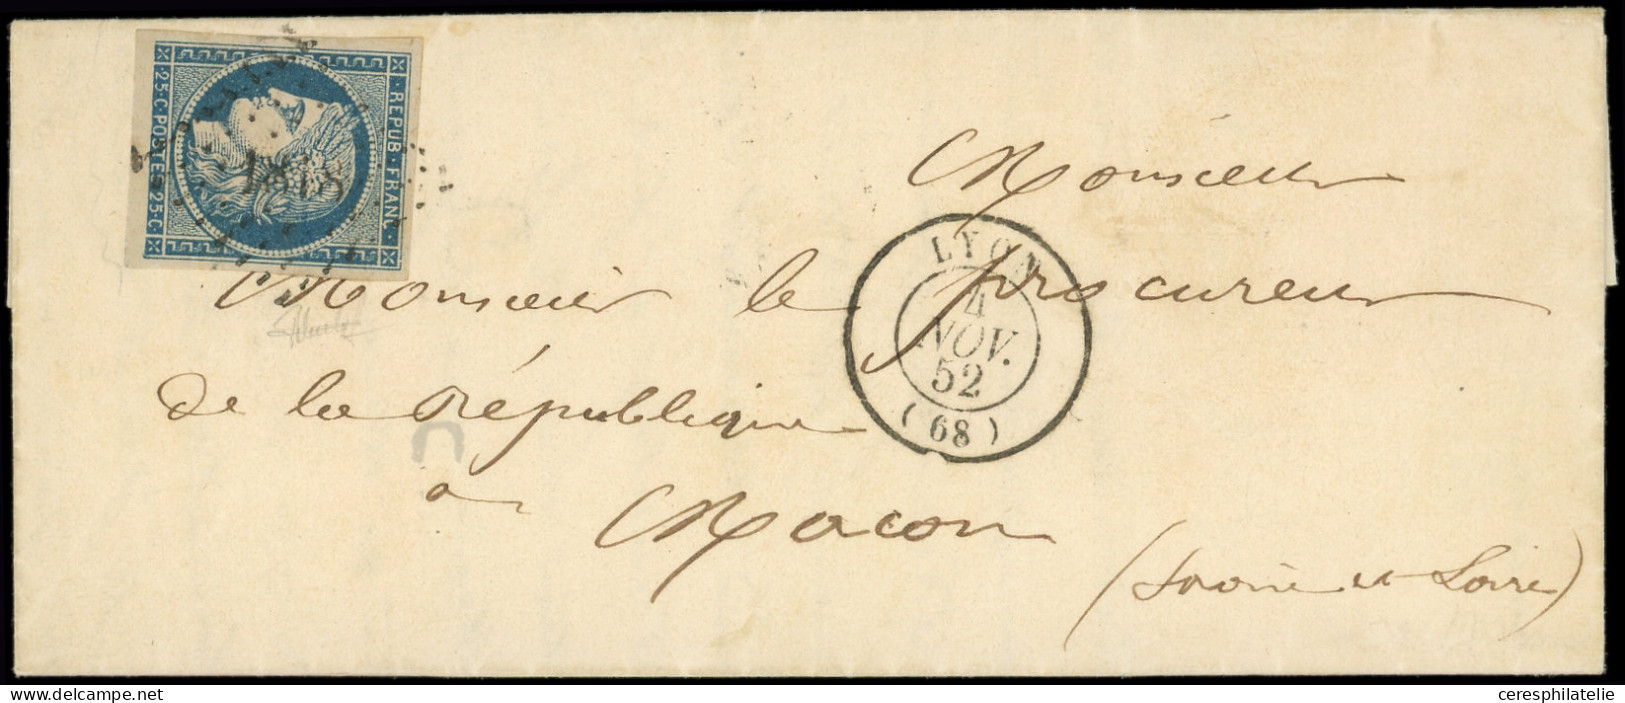 REPUB·FRANC·
·25·C·POSTES·25·C·
1818
Monsieur
LYON
4
NOV.
52
(68)
Monsieur le procureur
de la République
a
Macon
(Saone et Loire)
ceresphilatelie